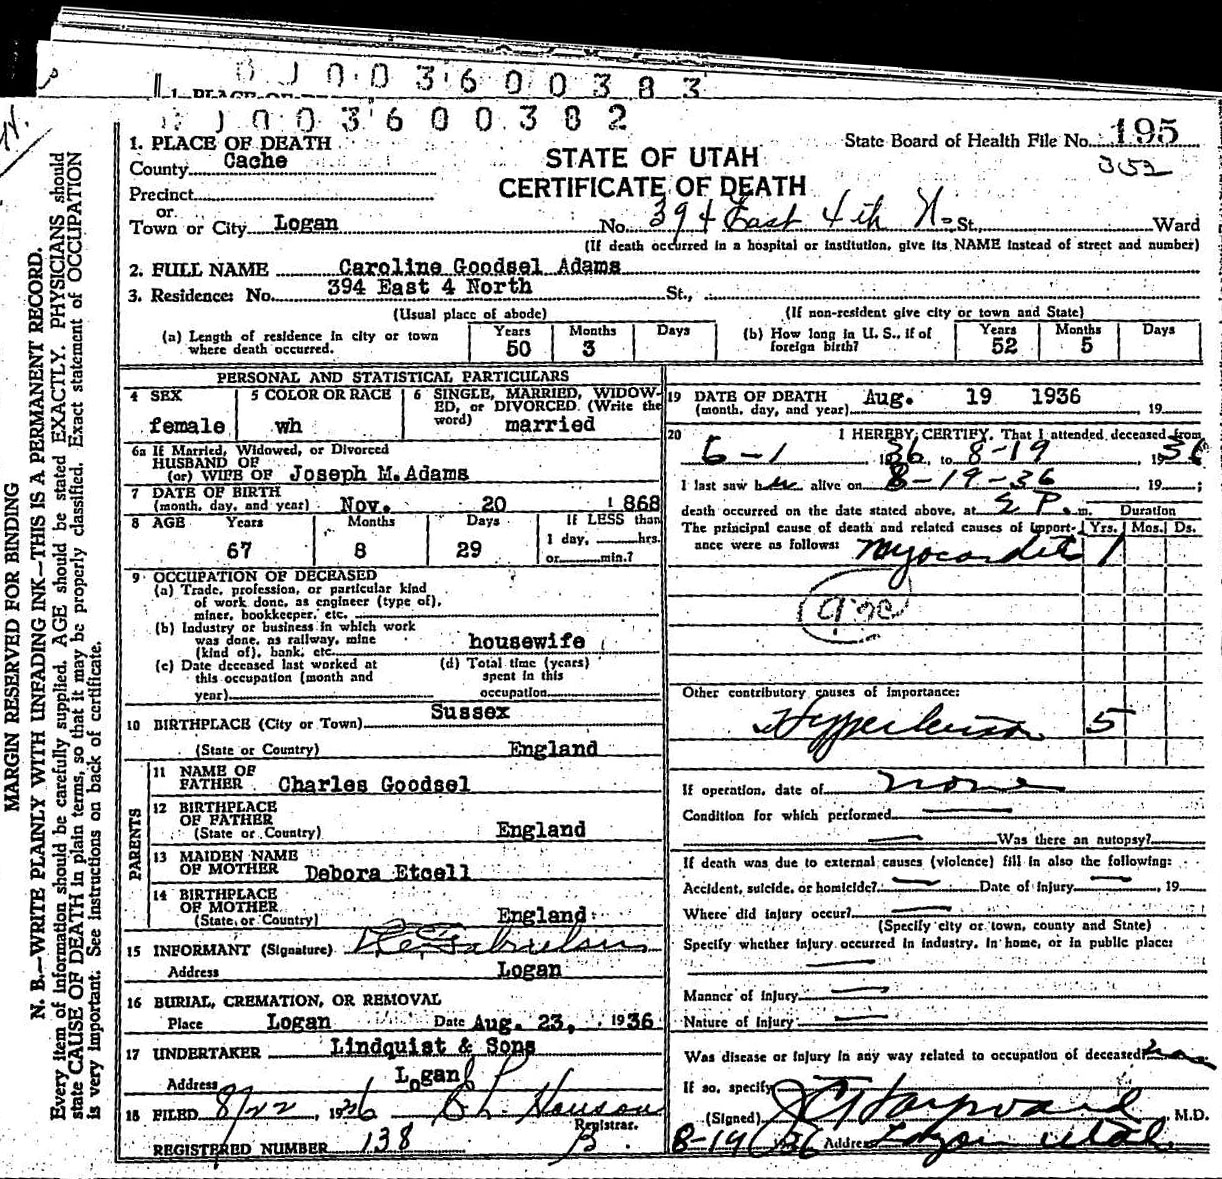 0 0 3 6 0 0 3 8 3
1. PLACE OF
0 0 3 6 0 0 3 8 2
MARGIN RESERVED FOR BINDING
N. B.—WRITE PLAINLY WITH UNFADING INK—THIS IS A PERMANENT RECORD.
Every item of information should be carefully supplied. AGE should be stated EXACTLY. PHYSICIANS should
state CAUSE OF DEATH in plain terms, so that it may be properly classified. Exact statement of OCCUPATION
is very important. See instructions on back of certificate.
State Board of Health File No. 195
352
STATE OF UTAH
CERTIFICATE OF DEATH
1. PLACE OF DEATH
County Cache
Precinct
or
Town or City Logan No. 394 East 4th N. St., Ward
(If death occurred in a hospital or institution, give its NAME instead of street and number)
2. FULL NAME Caroline Goodsel Adams
3. Residence: No. 394 East 4 North St.,
(Usual place of abode) (If non-resident give city or town and State)
(a) Length of residence in city or town where death occurred. Years 50 Months 3 Days
(b) How long in U. S., if of foreign birth? Years 52 Months 5 Days
PERSONAL AND STATISTICAL PARTICULARS
4 SEX female
5 COLOR OR RACE wh
6 SINGLE, MARRIED, WIDOWED, or DIVORCED. (Write the word) married
6a If Married, Widowed, or Divorced
HUSBAND OF
(or) WIFE OF Joseph M. Adams
7 DATE OF BIRTH
(month, day, and year) Nov. 20 1868
8 AGE Years 67 Months 8 Days 29 If LESS than 1 day, hrs. or min.?
9 OCCUPATION OF DECEASED
(a) Trade, profession, or particular kind
of work done, as engineer (type of),
miner, bookkeeper, etc.
(b) Industry or business in which work
was done, as railway, mine
(kind of), bank, etc. housewife
(c) Date deceased last worked at
this occupation (month and
year)
(d) Total time (years)
spent in this
occupation
10 BIRTHPLACE (City or Town) Sussex
(State or Country) England
PARENTS
11 NAME OF
FATHER Charles Goodsel
12 BIRTHPLACE
OF FATHER
(State or Country) England
13 MAIDEN NAME
OF MOTHER Debora Etcell
14 BIRTHPLACE
OF MOTHER
(State or Country) England
15 INFORMANT (Signature)
Address Logan
16 BURIAL, CREMATION, OR REMOVAL
Place Logan Date Aug. 23, 1936
17 UNDERTAKER Lindquist & Sons
Address Logan
18 FILED 8/22, 1936
Registrar.
REGISTERED NUMBER 138
19 DATE OF DEATH
(month, day, and year) Aug. 19 1936, 19
20 I HEREBY CERTIFY, That I attended deceased from
6-1 1936, to 8-19 1936
I last saw her alive on 8-19-36, 19 ;
death occurred on the date stated above, at 2 P. m. Duration
The principal cause of death and related causes of import- Yrs. Mos. Ds.
ance were as follows: Myocarditis 1
Other contributory causes of importance:
Hypertension 5
If operation, date of none
Condition for which performed
Was there an autopsy?
If death was due to external causes (violence) fill in also the following:
Accident, suicide, or homicide? Date of Injury , 19
Where did injury occur?
(Specify city or town, county and State)
Specify whether injury occurred in industry, in home, or in public place:
Manner of Injury
Nature of Injury
Was disease or injury in any way related to occupation of deceased? no
If so, specify
(Signed) J C Hayward M.D.
8-19 1936 Address Logan Utah